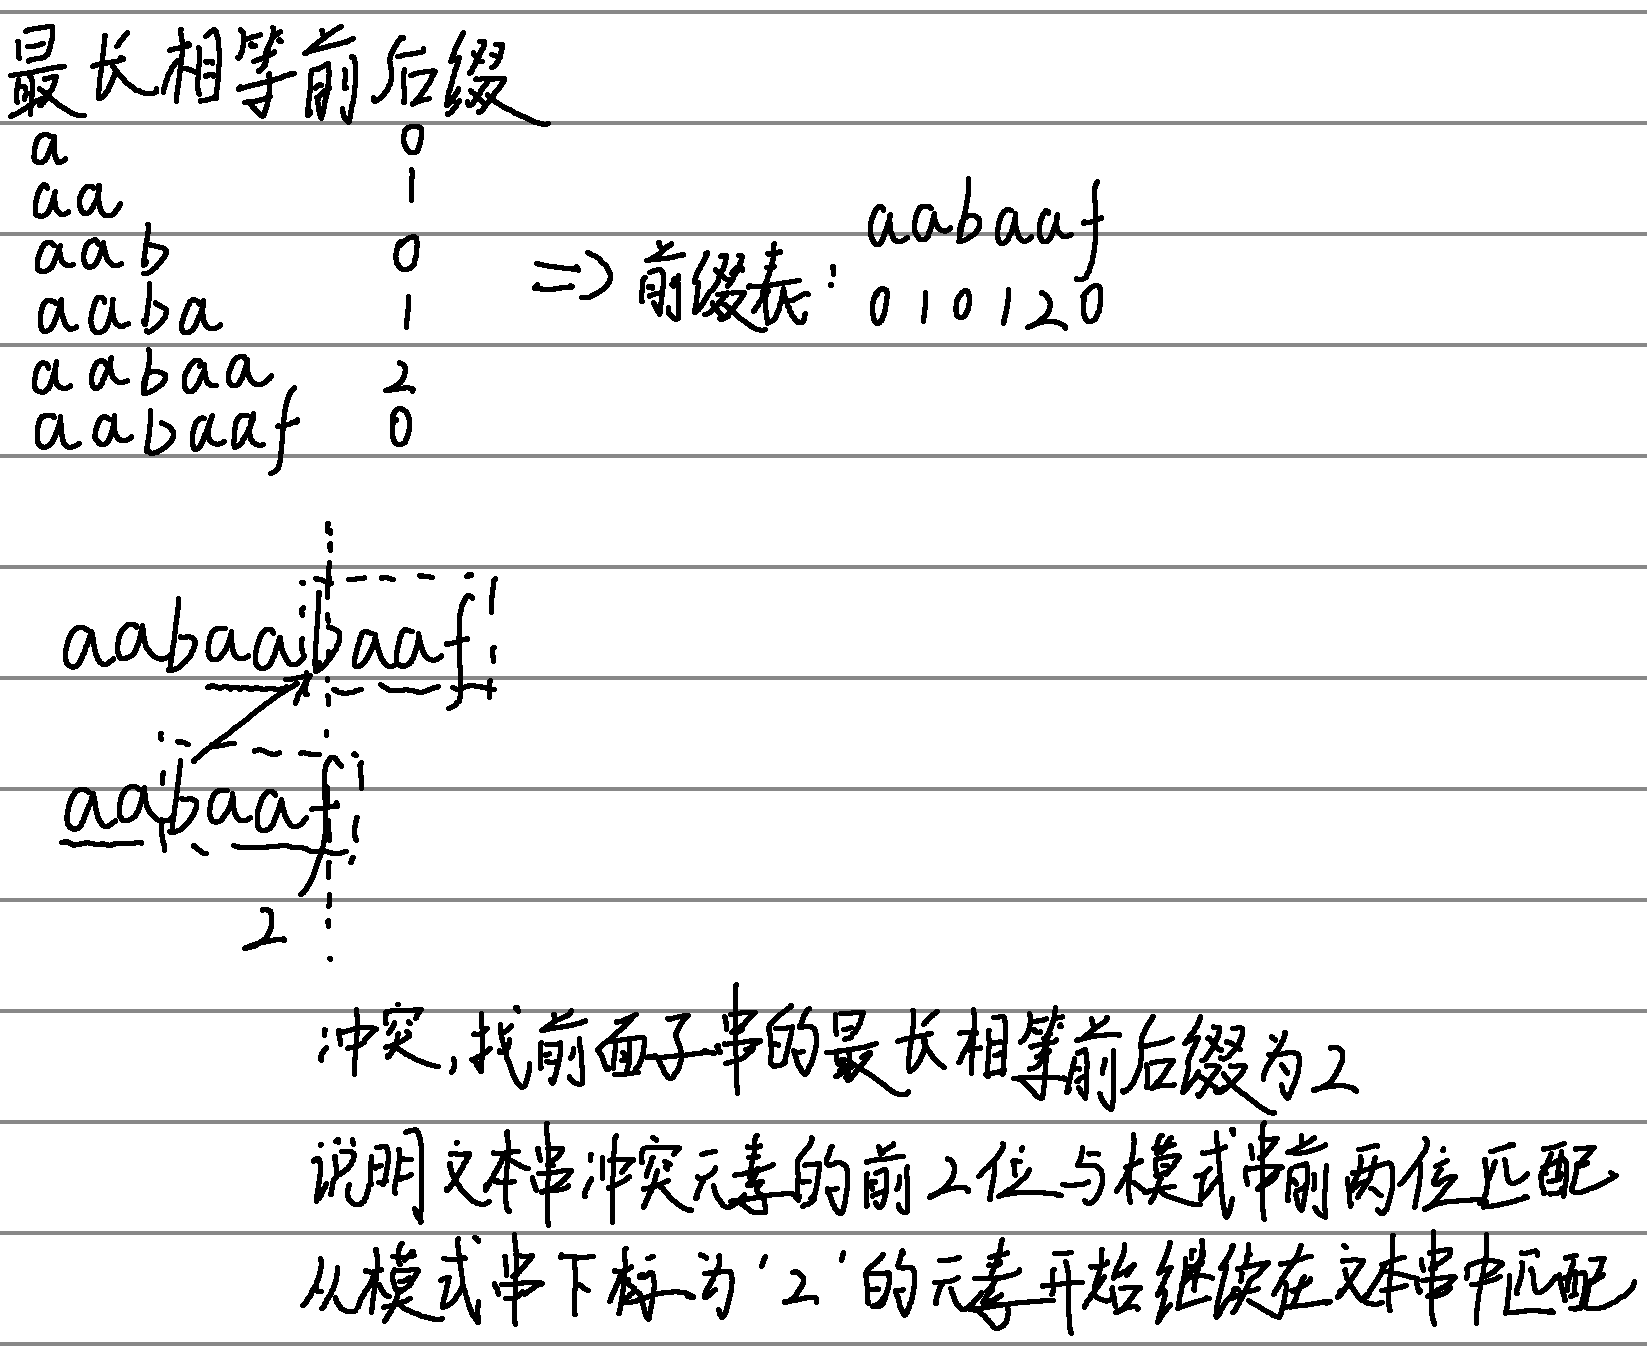 最长相等前后缀
a 0
aa 1
aab 0
aaba 1
aabaa 2
aabaaf 0
⇒ 前缀表:
aabaaf
010120
aabaabaaf
aabaaf
2
冲突,找前面子串的最长相等前后缀为2
说明文本串冲突元素的前2位与模式串前两位匹配
从模式串下标为'2'的元素开始继续在文本串中匹配